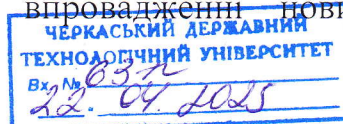 впровадженні нови
ЧЕРКАСЬКИЙ ДЕРЖАВНИЙ
ТЕХНОЛОГІЧНИЙ УНІВЕРСИТЕТ
Вх. № 63п
22. 04. 2025